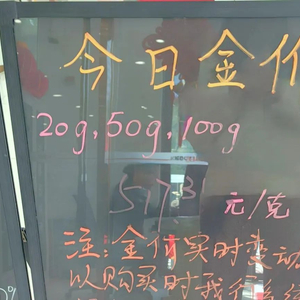 今日金价
20g,50g,100g
517.31
元/克
注:金价实时变动
以购买时我行系统